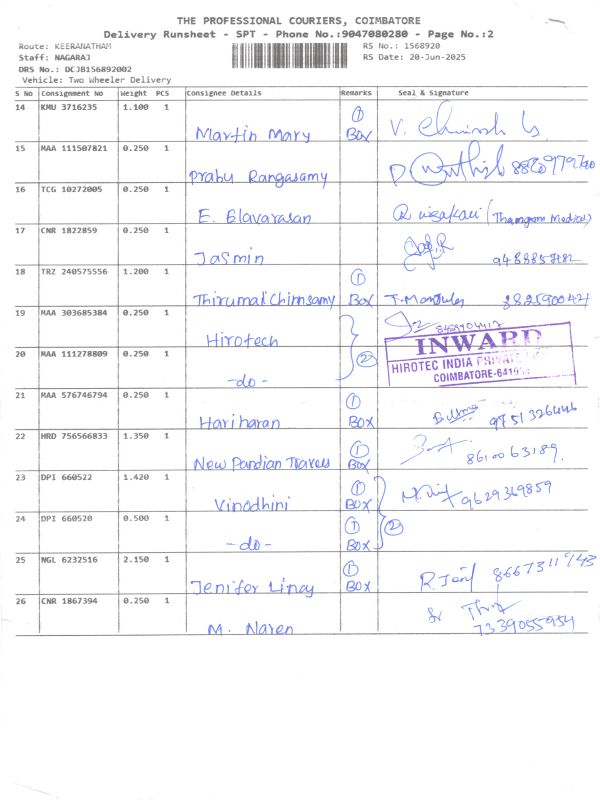 THE PROFESSIONAL COURIERS, COIMBATORE
Delivery Runsheet - SPT - Phone No.:9047080280 - Page No.:2
Route: KEERANATHAM RS No.: 1568920
Staff: NAGARAJ RS Date: 20-Jun-2025
DRS No.: DCJB156892002
Vehicle: Two Wheeler Delivery
S No Consignment No Weight PCS Consignee Details Remarks Seal & Signature
14 KMU 3716235 1.100 1 Martin Mary 1 BOX V.
15 MAA 111507821 0.250 1 Prabu Rangasamy
16 TCG 10272005 0.250 1 E. Elavarasan
17 CNR 1822859 0.250 1 Jasmin
18 TRZ 240575556 1.200 1 Thirumal Chinnsamy 1 Box
19 MAA 303685384 0.250 1 Hirotech
INWARD
HIROTEC INDIA
COIMBATORE
20 MAA 111278809 0.250 1 -do- 2
21 MAA 576746794 0.250 1 Hariharan 1 BOX 9751326446
22 HRD 756566833 1.350 1 New Pandian Travels 1 BOX 8610063189.
23 DPI 660522 1.420 1 Vinodhini 1 BOX 9629369859
24 DPI 660520 0.500 1 -do- 1 BOX 2
25 NGL 6232516 2.150 1 Jenifer Linay 1 BOX 8667311943
26 CNR 1867394 0.250 1 M. Naren 7339055954